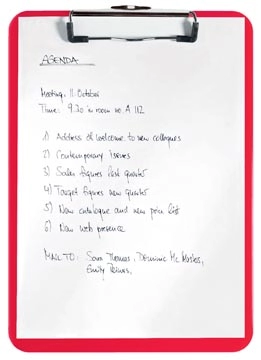 AGENDA
Meeting: 11. October
Time: 9.30 in room no. A 112
1) Address of welcome to new collegues
2) Contemporary issues
3) Sales figures last quarter
4) Target figures new quarter
5) New catalogue and new price list
6) New web presence
MAIL TO: Thomas, Dominic Mc
Emily